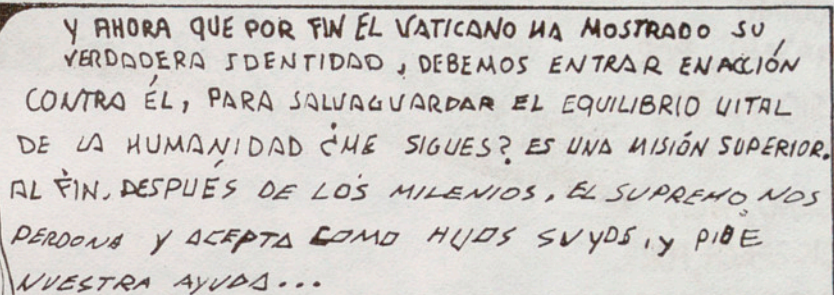 Y AHORA QUE POR FIN EL VATICANO HA MOSTRADO SU
VERDADERA IDENTIDAD, DEBEMOS ENTRAR EN ACCIÓN
CONTRA ÉL, PARA SALVAGUARDAR EL EQUILIBRIO VITAL
DE LA HUMANIDAD ¿ME SIGUES? ES UNA MISIÓN SUPERIOR.
AL FIN, DESPUÉS DE LOS MILENIOS, EL SUPREMO NOS
PERDONA Y ACEPTA COMO HIJOS SUYOS, Y PIDE
NUESTRA AYUDA...